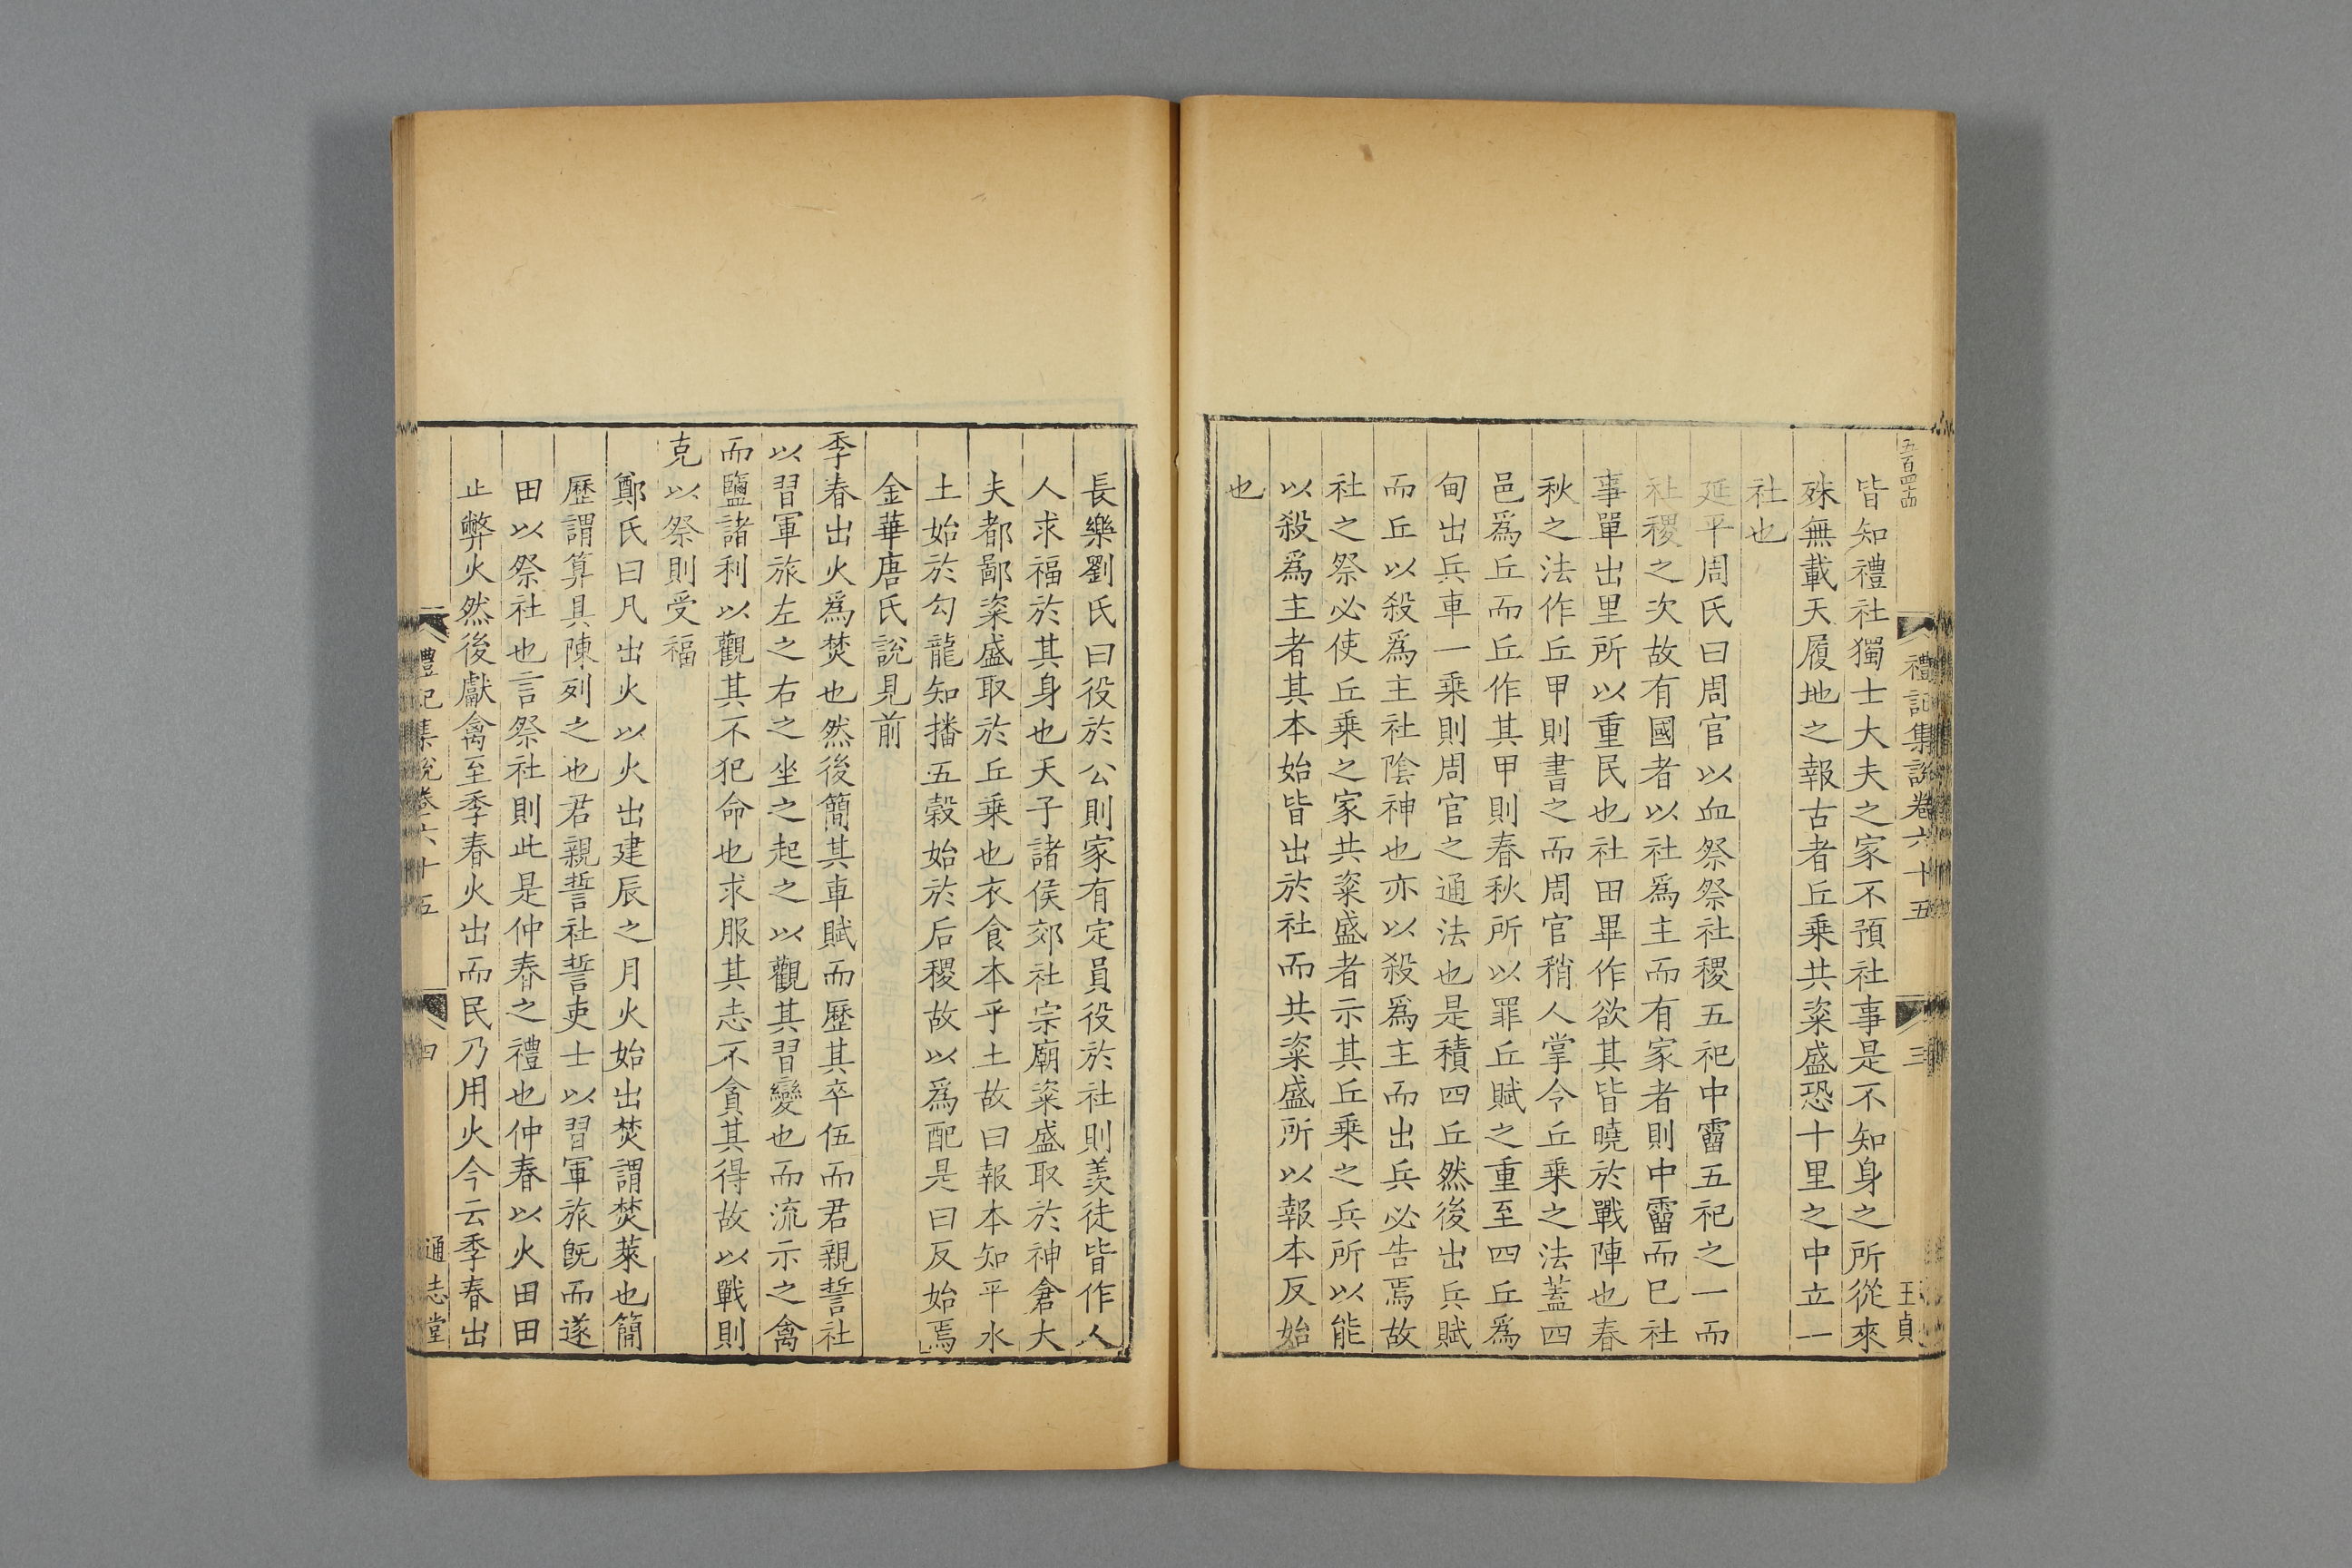 五百四十四
禮記集說卷六十五
三
王貞
皆知禮社獨士大夫之家不預社事是不知身之所從來
殊無載天履地之報古者丘乗共粢盛恐十里之中立一
社也
延平周氏曰周官以血祭祭社稷五祀中霤五祀之一而
社稷之次故有國者以社爲主而有家者則中霤而巳社
事單出里所以重民也社田畢作欲其皆曉於戰陣也春
秋之法作丘甲則書之而周官稍人掌令丘乗之法蓋四
邑爲丘而丘作其甲則春秋所以罪丘賦之重至四丘爲
甸出兵車一乗則周官之通法也是積四丘然後出兵賦
而丘以殺爲主社陰神也亦以殺爲主而出兵必告焉故
社之祭必使丘乗之家共粢盛者示其丘乗之兵所以能
以殺爲主者其本始皆出於社而共粢盛所以報本反始
也
長樂劉氏曰役於公則家有定員役於社則羡徒皆作人
人求福於其身也天子諸侯郊社宗廟粢盛取於神倉大
夫都鄙粢盛取於丘乗也衣食本乎土故曰報本知平水
土始於勾龍知播五榖始於后稷故以爲配是曰反始焉
金華唐氏說見前
季春出火爲焚也然後簡其車賦而歷其卒伍而君親誓社
以習軍旅左之右之坐之起之以觀其習變也而流示之禽
而鹽諸利以觀其不犯命也求服其志不貪其得故以戰則
克以祭則受福
鄭氏曰凡出火以火出建辰之月火始出焚謂焚萊也簡
歷謂算具陳列之也君親誓社誓吏士以習軍旅旣而遂
田以祭社也言祭社則此是仲春之禮也仲春以火田田
止弊火然後獻禽至季春火出而民乃用火今云季春出
禮記集說卷六十五
四
通志堂